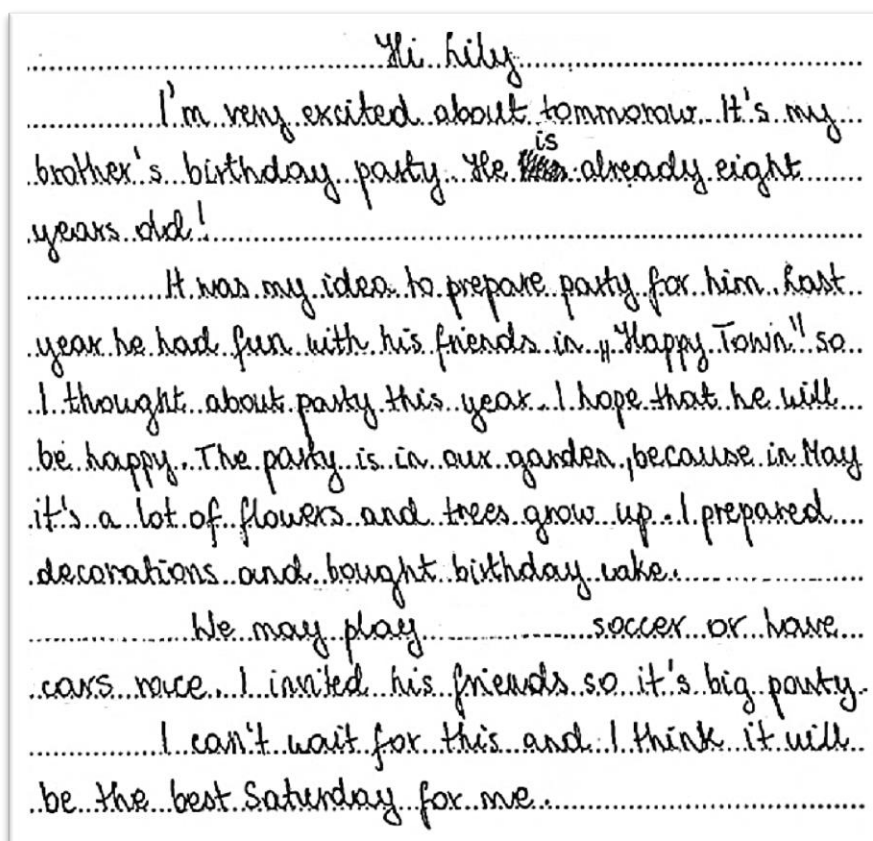 Hi Lily
I'm very excited about tommorow. It's my
brother's birthday party. He is already eight
years old!
It was my idea to prepare party for him. Last
year he had fun with his friends in „Happy Town" so
I thought about party this year. I hope that he will
be happy. The party is in our garden, because in May
it's a lot of flowers and trees grow up. I prepared
decorations and bought birthday cake.
We may play soccer or have
cars race. I invited his friends so it's big party.
I can't wait for this and I think it will
be the best Saturday for me.